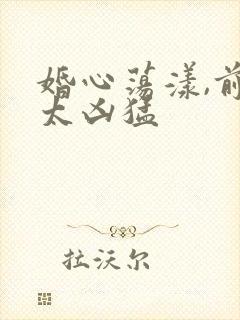 婚心荡漾,前
太凶猛
拉沃尔